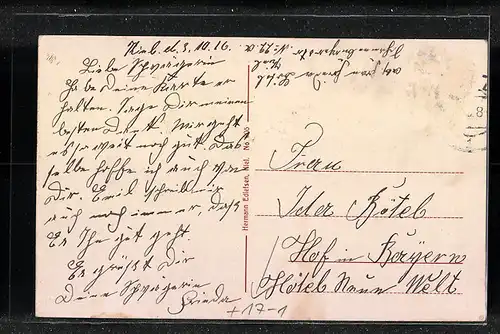 Kiel. d. 3. 10. 16.
Liebe Schwägerin
Habe Deine Karte er
halten. Sage Dir meinen
besten Dank. Mir geht
es soweit noch gut. Das
selbe hoffe ich auch von
Dir. Emil schreibt mir
auch noch immer, daß
Es Ihm gut geht
Es grüßt Dir
Deine Schwägerin
Frieda
Abs. Frau Frieda
Kiel
Hermann Edlefsen, Kiel. No
Frau
Ida Bötel
Hof in Bayern
Hôtel Neue Welt
+17-1